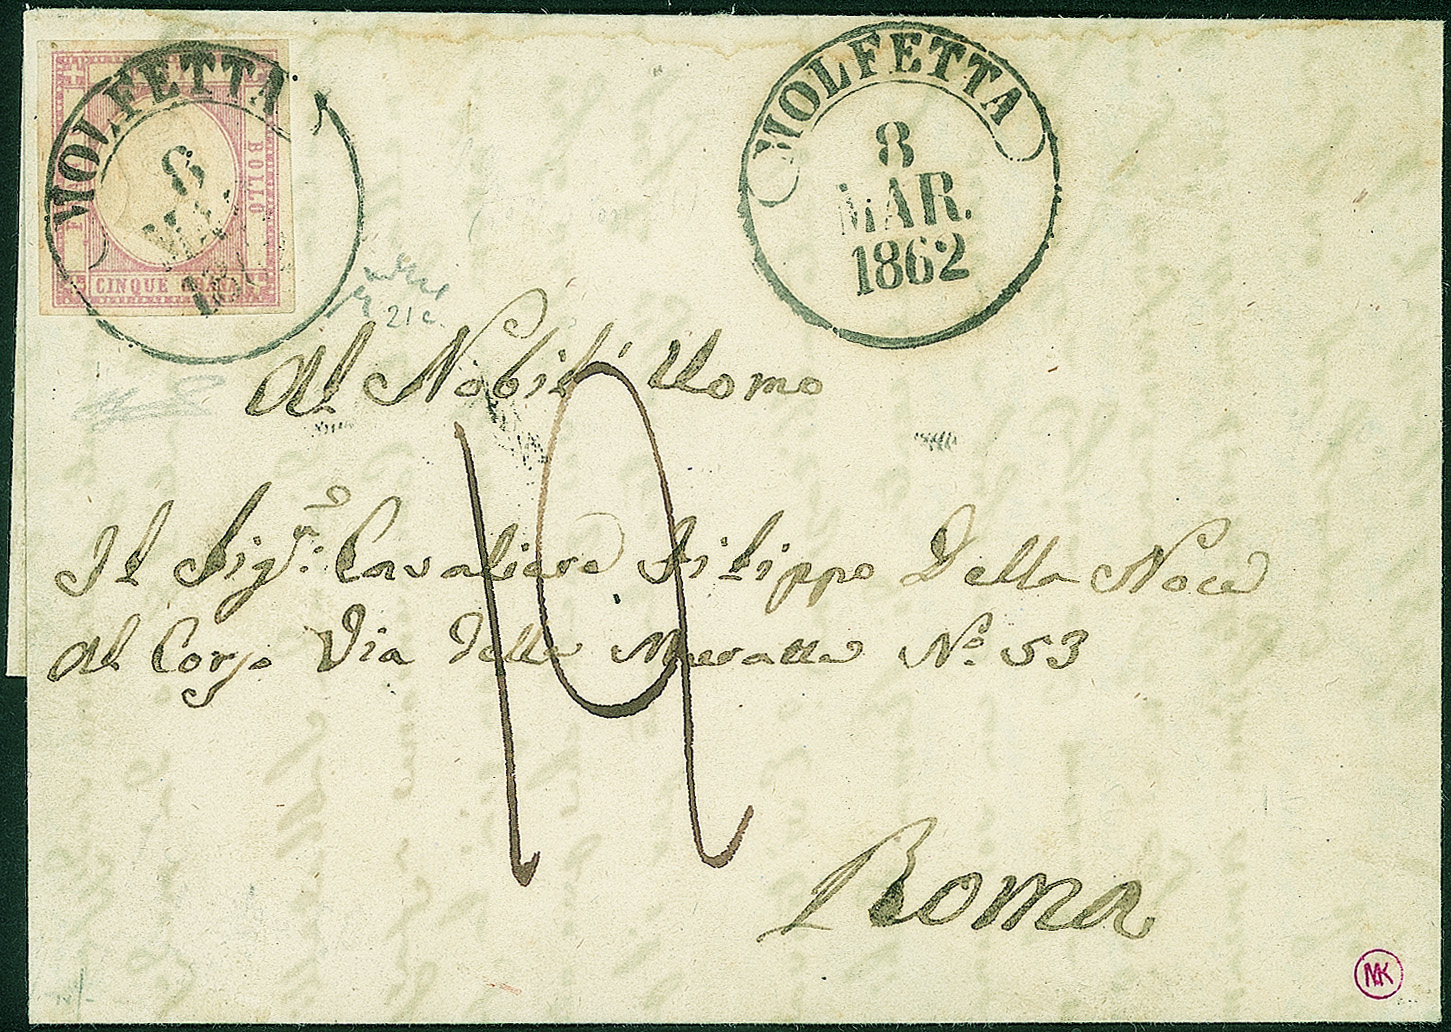 MOLFETTA
8
BOLLO
CINQUE GRANA
MOLFETTA
8
MAR.
1862
21c.
Al Nobil' Uomo
19
Il Sig.r Cavaliere Filippo Della Noce
Al Corso Via delle Muratte N.o 53
Roma
MK